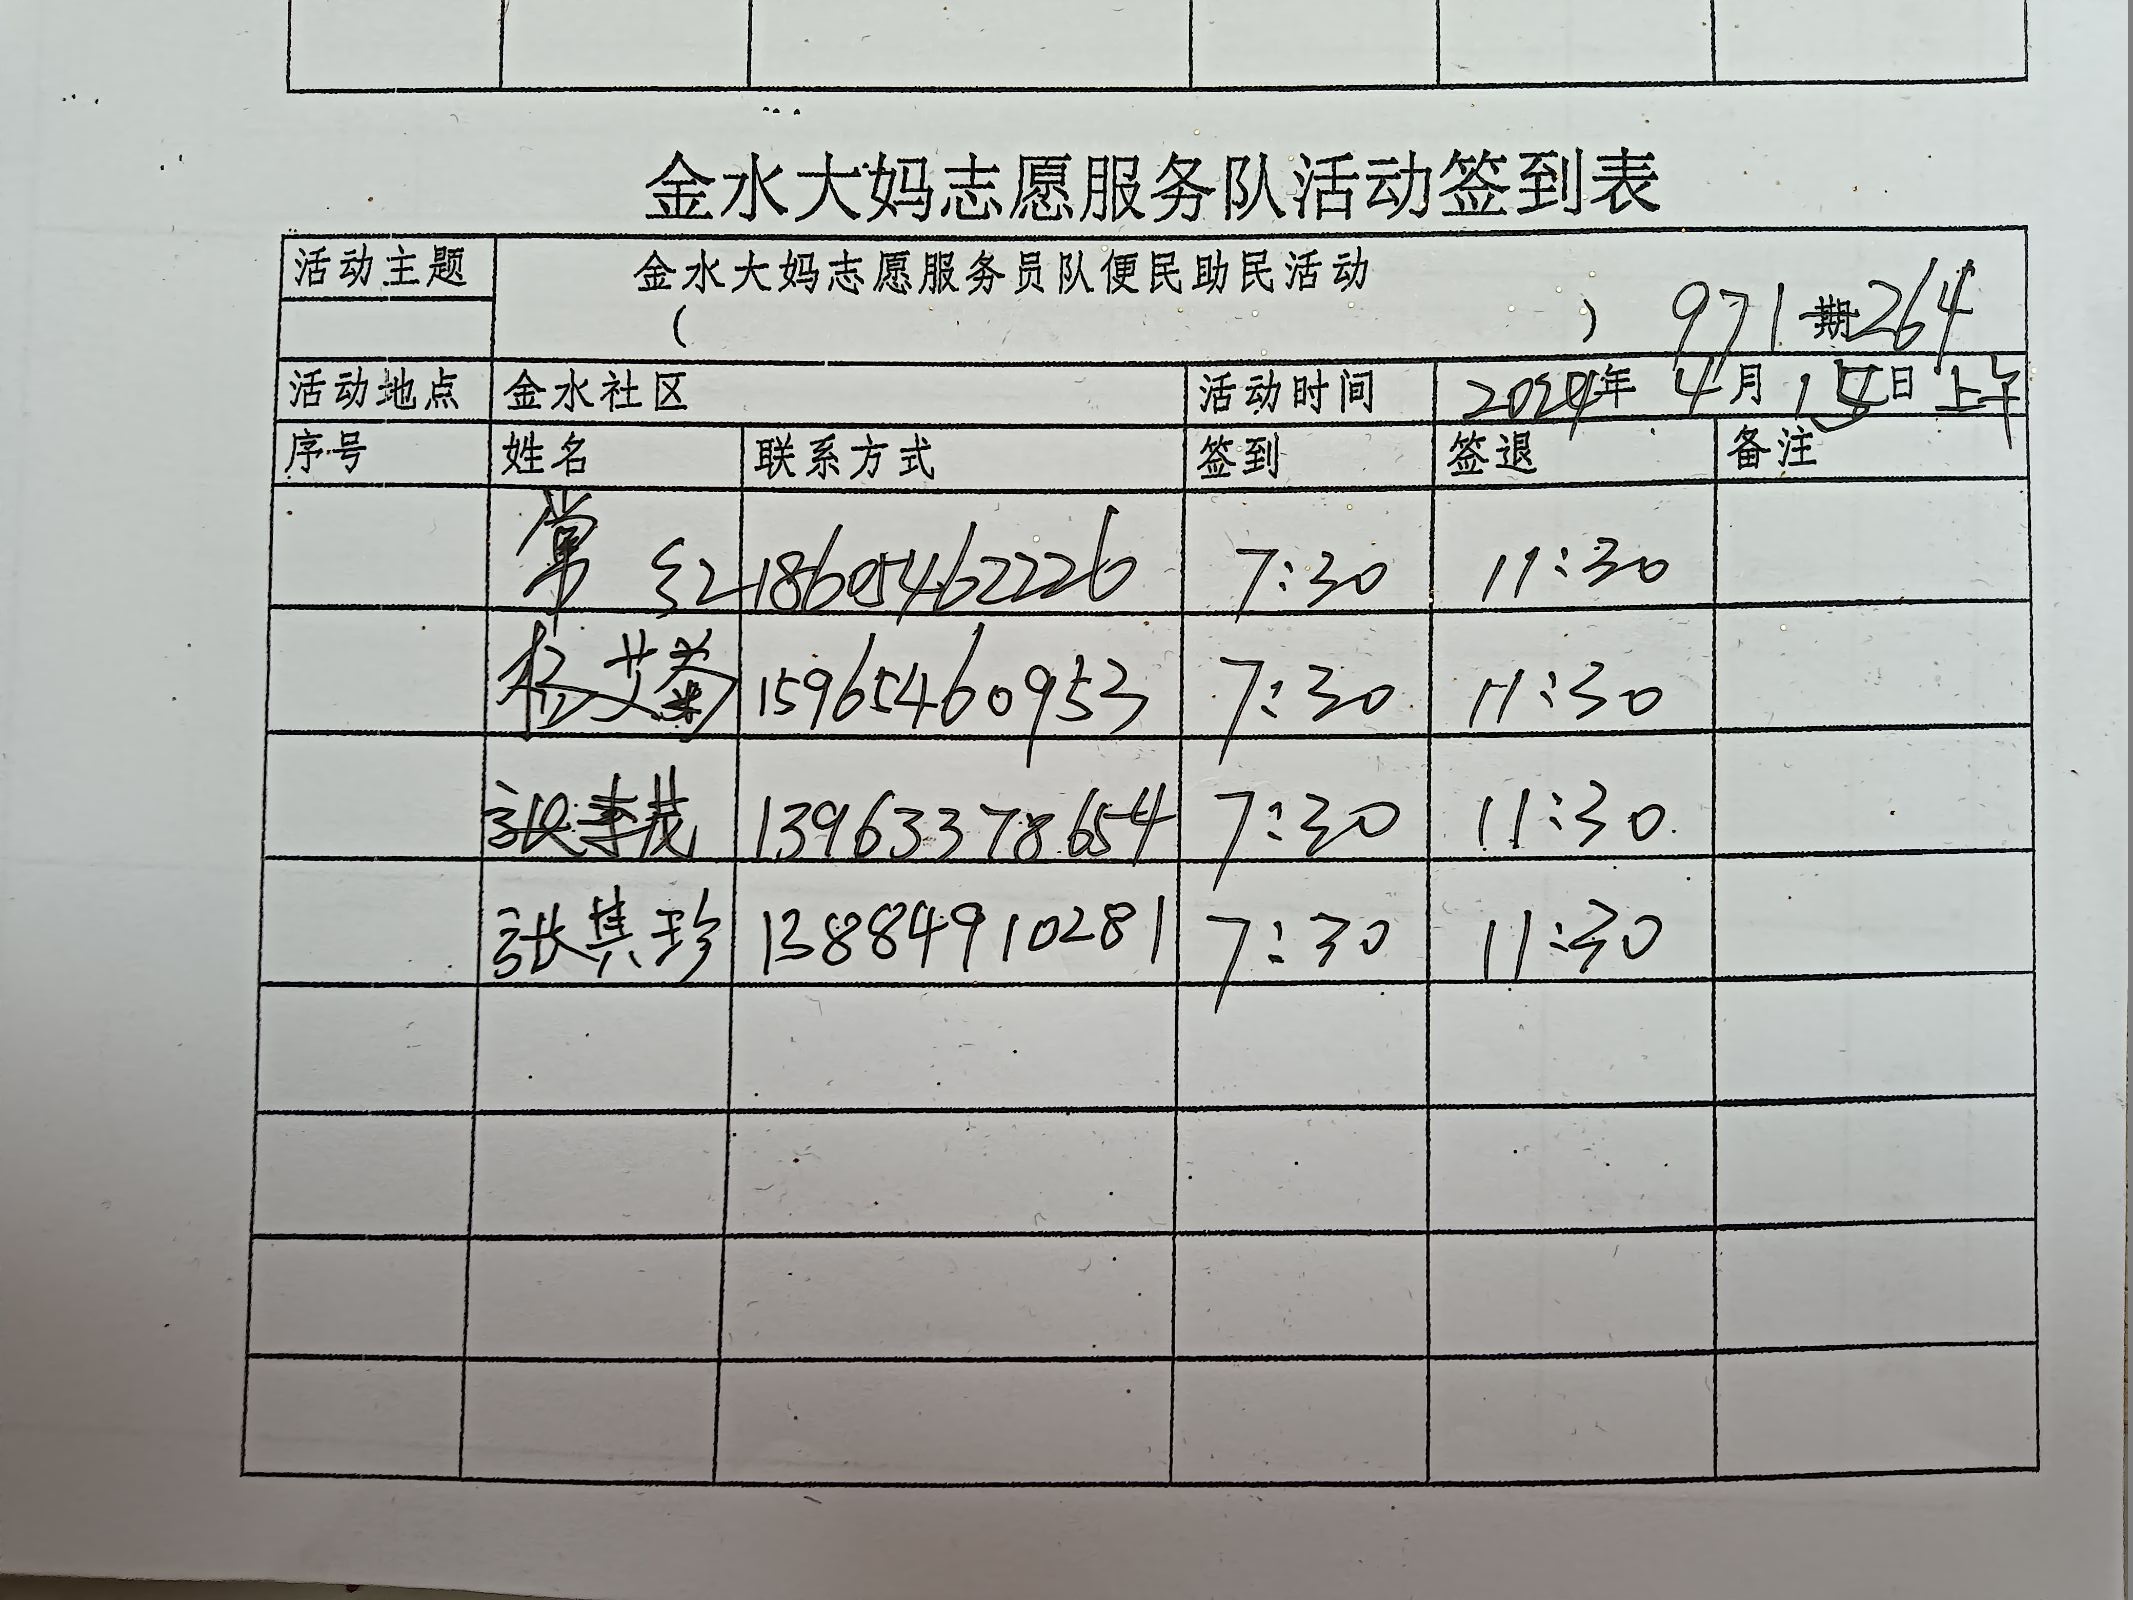 金水大妈志愿服务队活动签到表
活动主题 金水大妈志愿服务员队便民助民活动
( ) 971期264
活动地点 金水社区 活动时间 2024年 4月 15日 上午
序号 姓名 联系方式 签到 签退 备注
常红 18605462226 7:30 11:30
杨艾菊 15965460953 7:30 11:30
張李茂 13963378654 7:30 11:30
張其珍 13884910281 7:30 11:30